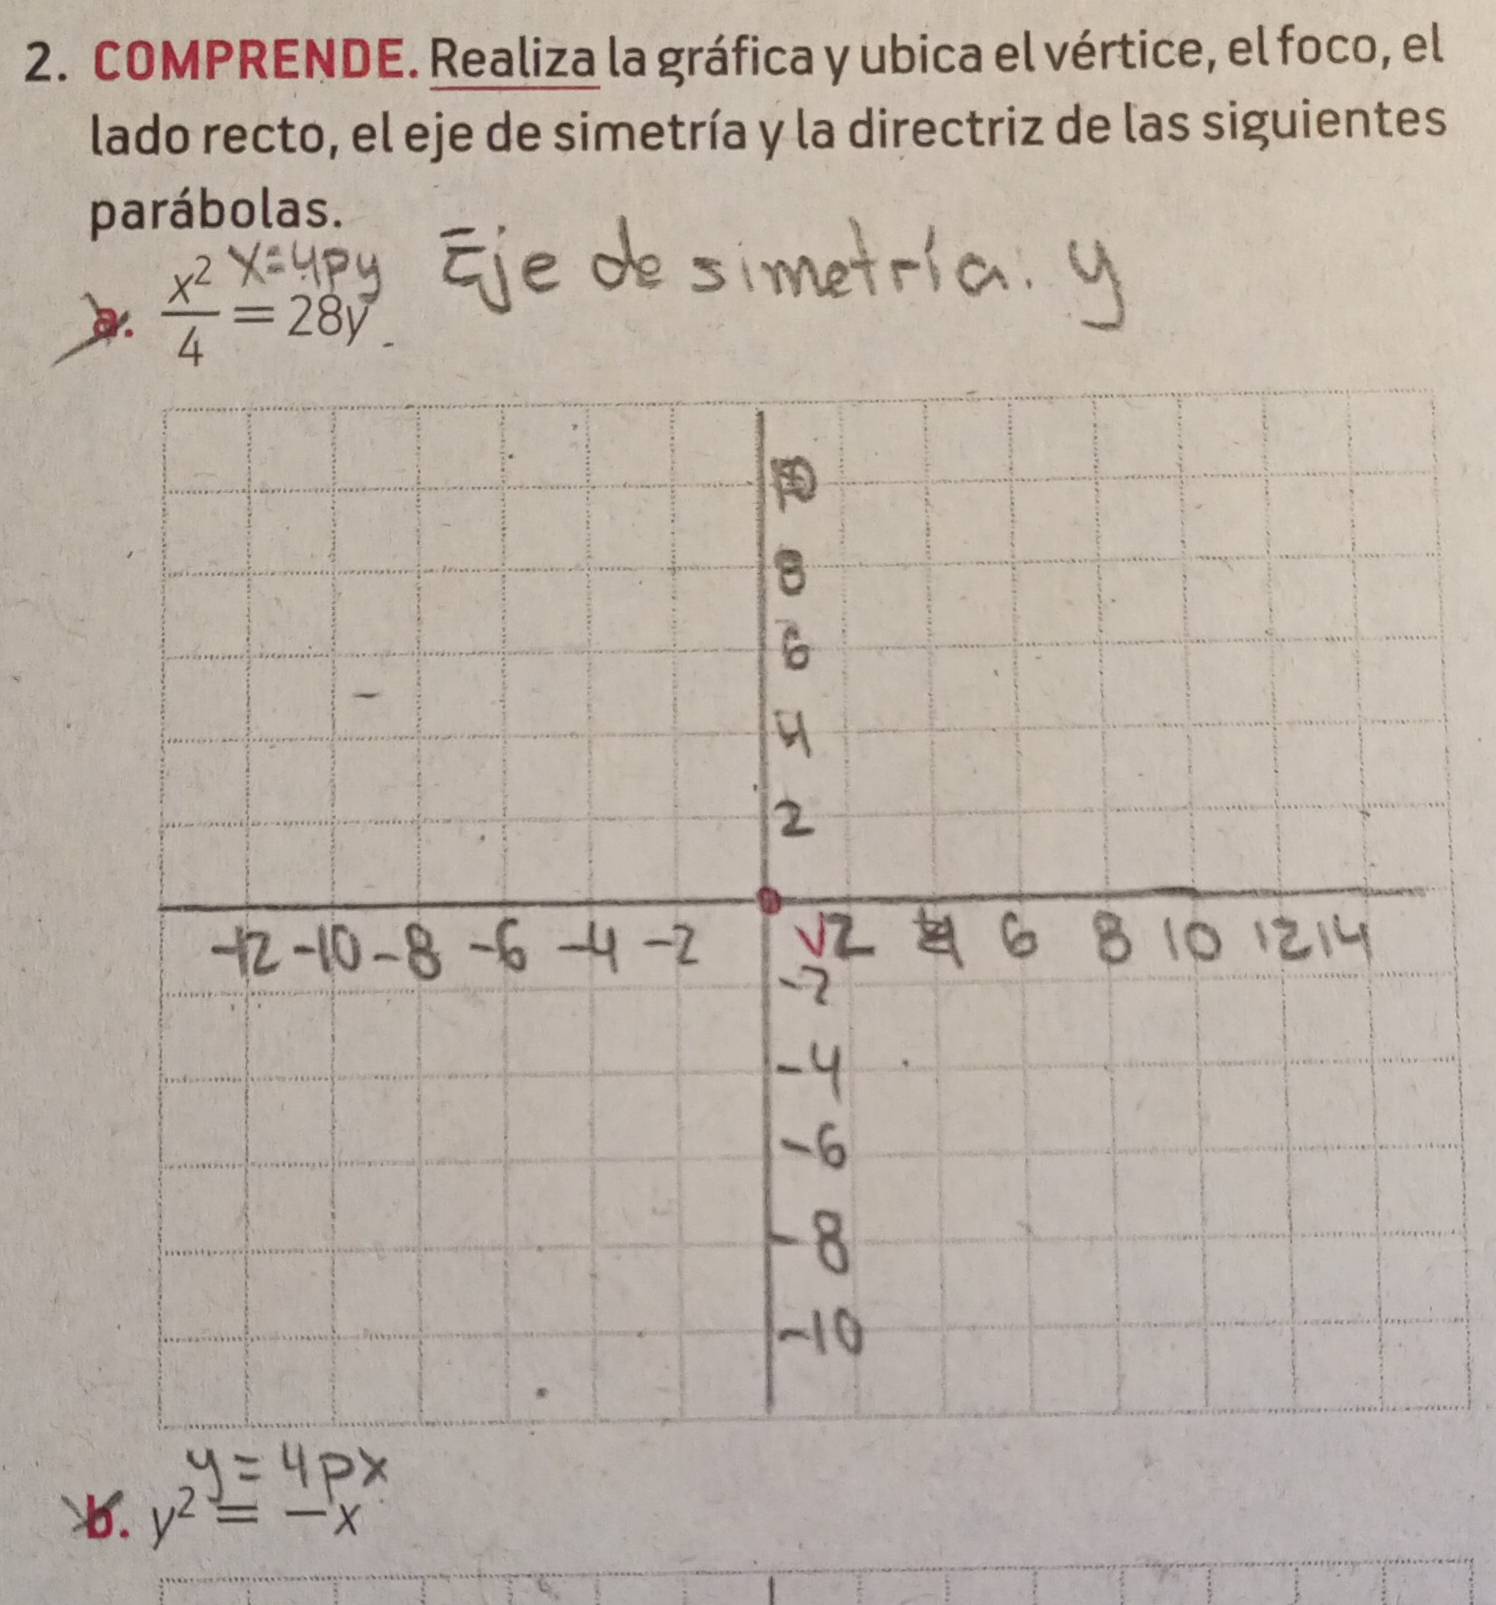 2. COMPRENDE. Realiza la gráfica y ubica el vértice, el foco, el
lado recto, el eje de simetría y la directriz de las siguientes
parábolas.
x=4py Eje de simetría. y
a. x²/4 = 28y
10
8
6
4
2
-12 -10 -8 -6 -4 -2 √2 4 6 8 10 12 14
-2
-4
-6
-8
-10
y = 4px
b. y² = -x